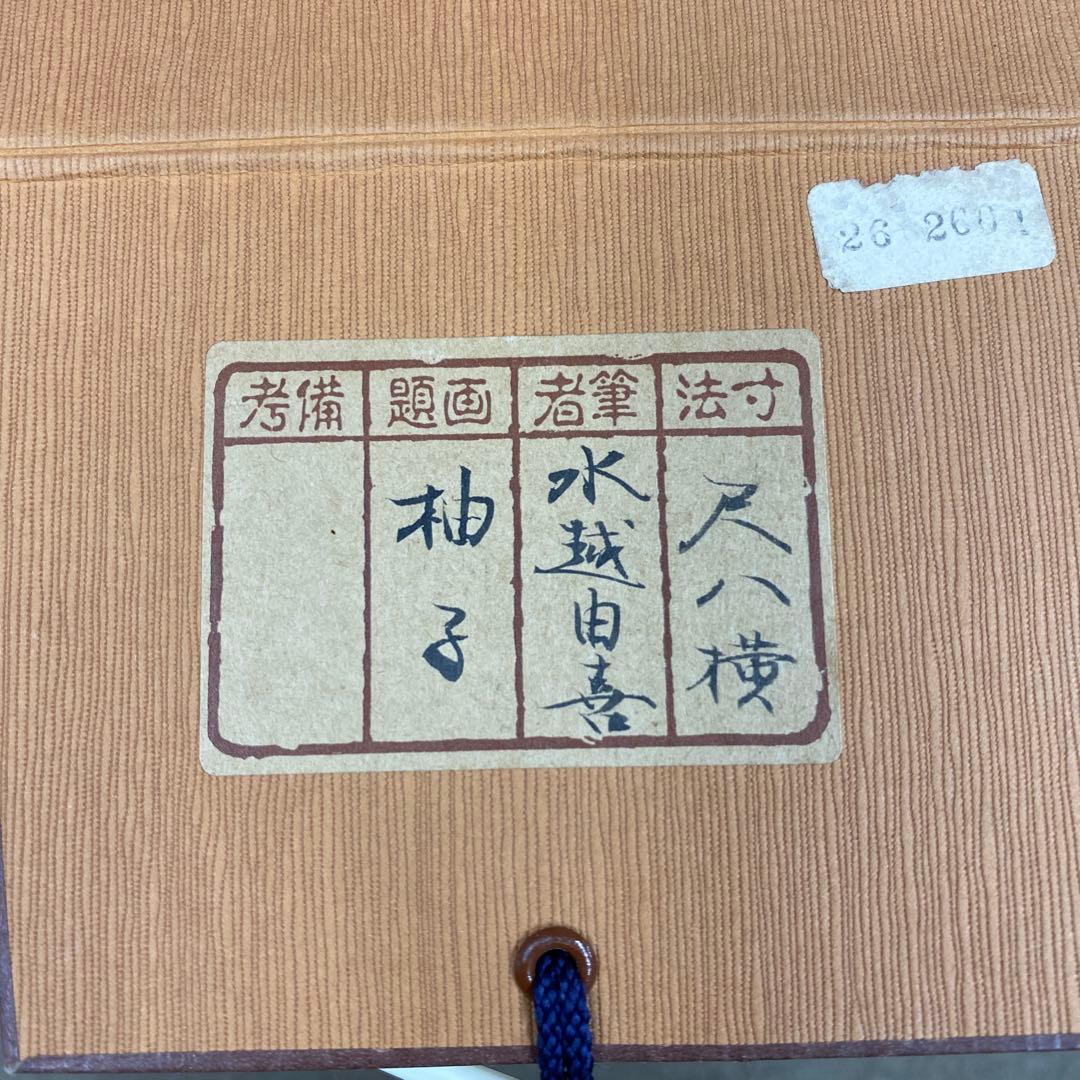 26 2601
寸法
尺八横
筆者
水越由喜
画題
柚子
備考